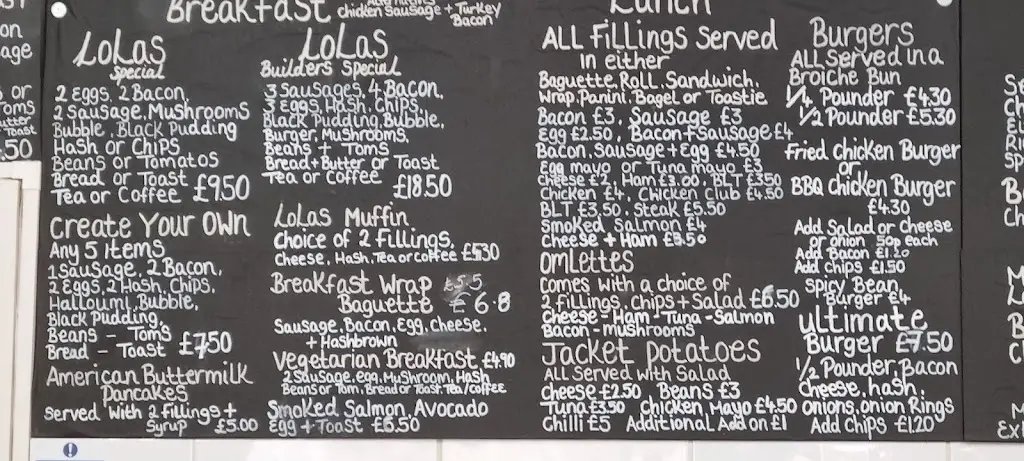 Breakfast
chicken Sausage + Turkey
Bacon
LoLas
Special
2 Eggs, 2 Bacon,
2 Sausage, Mushrooms
Bubble, Black Pudding
Hash or Chips
Beans or Tomatos
Bread or Toast
Tea or Coffee £9.50
Create Your Own
Any 5 Items
1 Sausage, 2 Bacon,
2 Eggs, 2 Hash, Chips,
Halloumi, Bubble,
Black Pudding,
Beans - Toms
Bread - Toast £7.50
American Buttermilk
Pancakes
Served With 2 fillings +
Syrup £5.00
LoLas
Builders Special
3 Sausages, 4 Bacon,
3 Eggs, Hash, Chips,
Black Pudding, Bubble,
Burger, Mushrooms,
Beans + Toms
Bread + Butter or Toast
Tea or Coffee £18.50
LoLas Muffin
Choice of 2 Fillings,
Cheese, Hash, Tea or Coffee £5.30
Breakfast Wrap £5.5
Baguette £6.8
Sausage, Bacon, Egg, Cheese,
+ Hashbrown
Vegetarian Breakfast £4.90
2 Sausage, egg, Mushroom, Hash
Beans or Tom, Bread or Toast, Tea/Coffee
Smoked Salmon, Avocado
Egg + Toast £6.50
Lunch
ALL Fillings Served
in either
Baguette, Roll, Sandwich,
Wrap, Panini, Bagel or Toastie
Bacon £3, Sausage £3
Egg £2.50, Bacon + Sausage £4
Bacon, Sausage + Egg £4.50
Egg mayo or Tuna mayo £3
Cheese £2, Ham £3.00, BLT £3.50
Chicken £4, Chicken Club £4.50
BLT £3.50, Steak £5.50
Smoked Salmon £4
Cheese + Ham £3.50
Omlettes
Comes with a choice of
2 fillings, chips + Salad £6.50
Cheese - Ham - Tuna - Salmon
Bacon - mushrooms
Jacket Potatoes
All Served with Salad
Cheese £2.50 Beans £3
Tuna £3.50 Chicken, Mayo £4.50
Chilli £5 Additional Add on £1
Burgers
All Served in a
Broiche Bun
1/4 Pounder £4.30
1/2 Pounder £5.30
Fried Chicken Burger
or
BBQ Chicken Burger
£4.30
Add Salad or cheese
or onion 50p each
Add Bacon £1.20
Add Chips £1.50
Spicy Bean
Burger £4
Ultimate
Burger £7.50
1/2 Pounder, Bacon
Cheese, hash,
Onions, Onion Rings
Add Chips £1.20